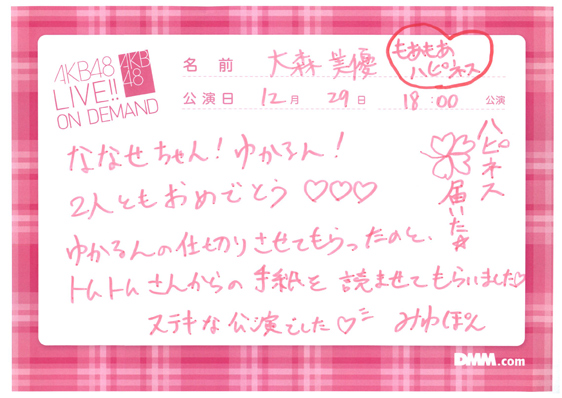 AKB48
LIVE!!
ON DEMAND
AKB
48
名前 大森美優
もあもあ
ハピネス
公演日 12月 29日 18:00 公演
ななせちゃん!ゆかるん!
2人ともおめでとう♡♡♡
ゆかるんの仕切りさせてもらったのと、
トムトムさんからの手紙を読ませてもらいました♡
ステキな公演でした♡ みゆぽん
ハピネス
届いた☆
DMM.com